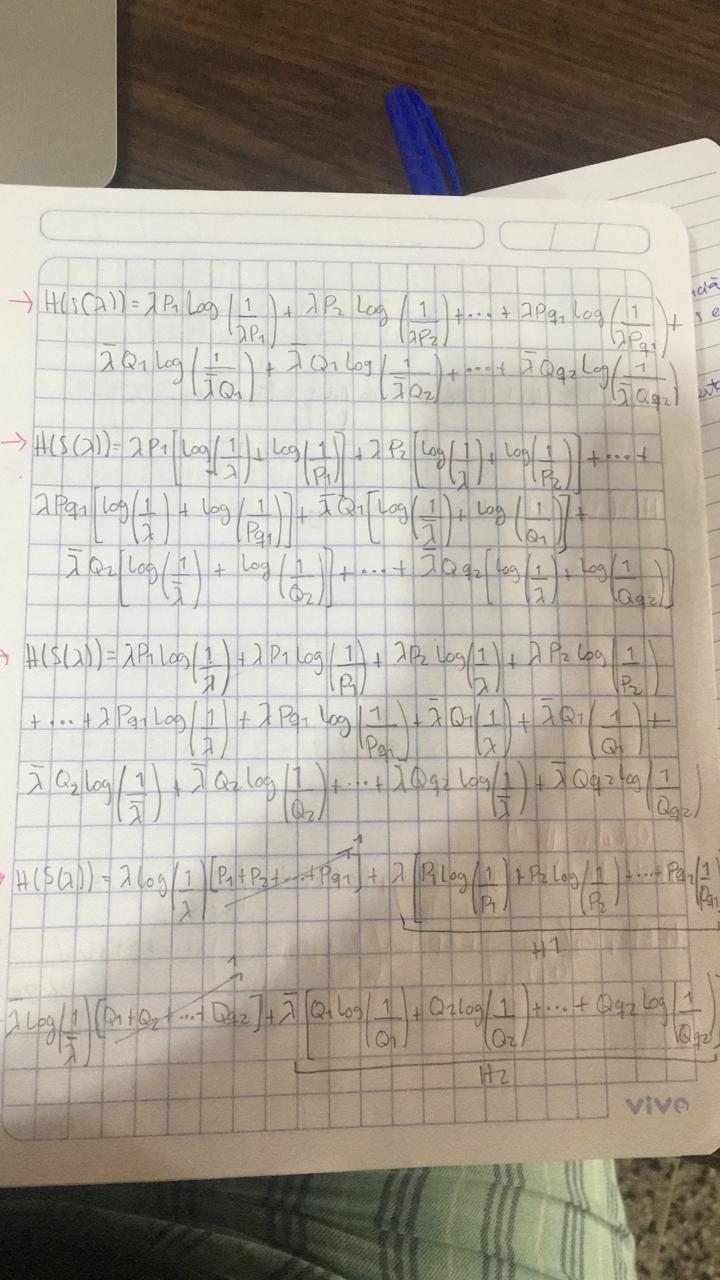 → H(S(λ)) = λP₁ Log (1/λP₁) + λP₂ log (1/λP₂) + ... + λPq₁ log (1/λPq₁) +
λ̄Q₁ log (1/λ̄Q₁) + λ̄Q₁ log (1/λ̄Q₂) + ... + λ̄Qq₂ log (1/λ̄Qq₂)
→ H(S(λ)) = λP₁ [log (1/λ) + log (1/P₁)] + λP₂ [log (1/λ) + log (1/P₂)] + ... +
λPq₁ [log (1/λ) + log (1/Pq₁)] + λ̄Q₁ [log (1/λ̄) + log (1/Q₁)] +
λ̄Q₂ [log (1/λ̄) + log (1/Q₂)] + ... + λ̄Qq₂ [log (1/λ) + log (1/Qq₂)]
→ H(S(λ)) = λP₁ log (1/λ) + λP₁ log (1/P₁) + λP₂ log (1/λ) + λP₂ log (1/P₂)
+ ... + λPq₁ log (1/λ) + λPq₁ log (1/Pq₁) + λ̄Q₁ (1/λ) + λ̄Q₁ (1/Q₁) +
λ̄Q₂ log (1/λ̄) + λ̄Q₂ log (1/Q₂) + ... + λ̄Qq₂ log (1/λ̄) + λ̄Qq₂ log (1/Qq₂)
1
→ H(S(λ)) = λ log (1/λ) [P₁ + P₂ + ... + Pq₁] + λ [P₁ log (1/P₁) + P₂ log (1/P₂) + ... + Pq₂ (1/Pq₁)
H1
1
λ̄ log (1/λ̄) [Q₁ + Q₂ + ... + Qq₂] + λ̄ [Q₁ log (1/Q₁) + Q₂ log (1/Q₂) + ... + Qq₂ log (1/Qq₂)
H2
vivo